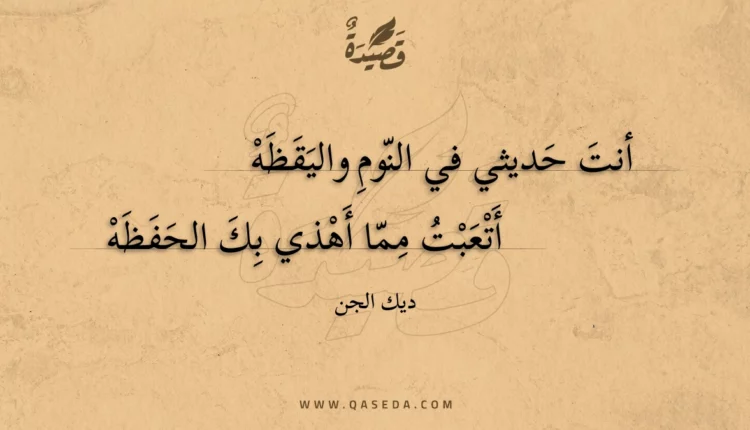 قَصِيدَةٌ
أنتَ حَديثي في النّومِ واليَقَظَهْ
أَتْعَبْتُ مِمّا أَهْذي بِكَ الحَفَظَهْ
ديك الجن
WWW.QASEDA.COM